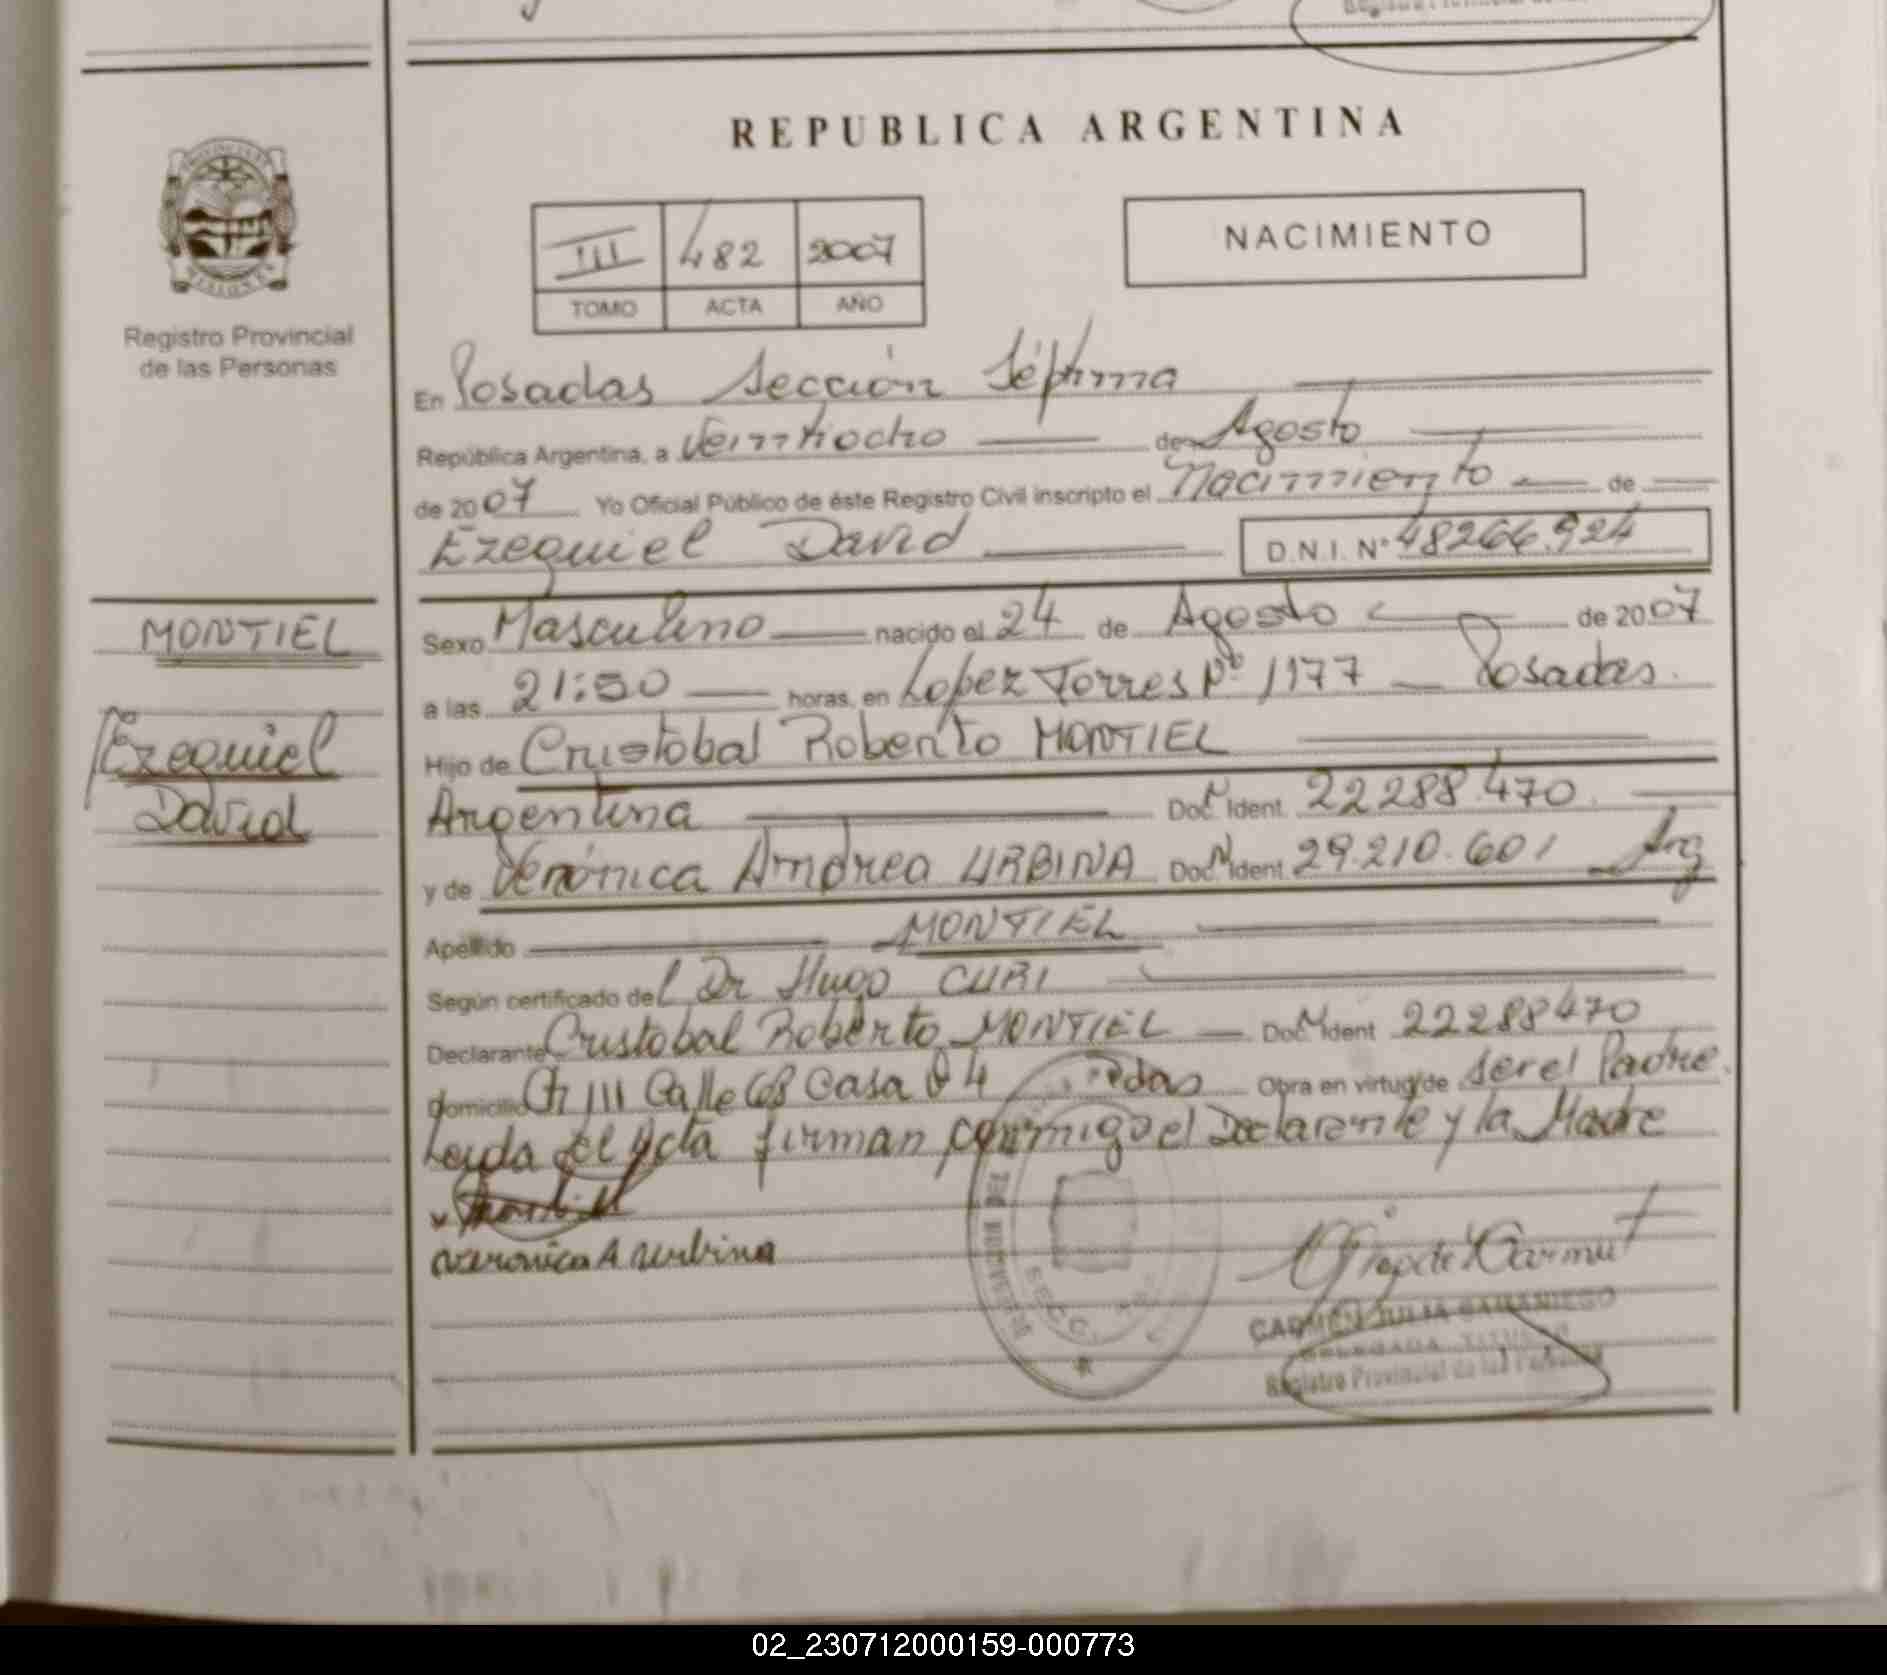 REPUBLICA ARGENTINA
PROVINCIA DE
MISIONES
Registro Provincial
de las Personas
III 482 2007
TOMO ACTA AÑO
NACIMIENTO
En Posadas Sección Séptima
República Argentina, a Veintiocho de Agosto
de 2007 Yo Oficial Público de éste Registro Civil inscripto el Nacimiento de
Ezequiel David D.N.I. Nº 48266.924
MONTIEL
Ezequiel
David
Sexo Masculino nacido el 24 de Agosto de 2007
a las 21:50 horas, en Lopez Torres Nº 1177 Posadas.
Hijo de Cristobal Roberto MONTIEL
Argentina Doc. N Ident. 22288.470
y de Verónica Andrea URBINA Doc. N Ident. 29.210.601 Arg
Apellido MONTIEL
Según certificado del Dr Hugo CURI
Declarante Cristobal Roberto MONTIEL Doc. N Ident 22288470
domicilio Ch 111 Calle Casa 4 Pdas Obra en virtud de ser el Padre.
Leida el Acta firman conmigo el Declarante y la Madre
veronica A urbina
CARMEN JULIA SAMANIEGO
DELEGADA TITULAR
Registro Provincial de las Personas
02_230712000159-000773